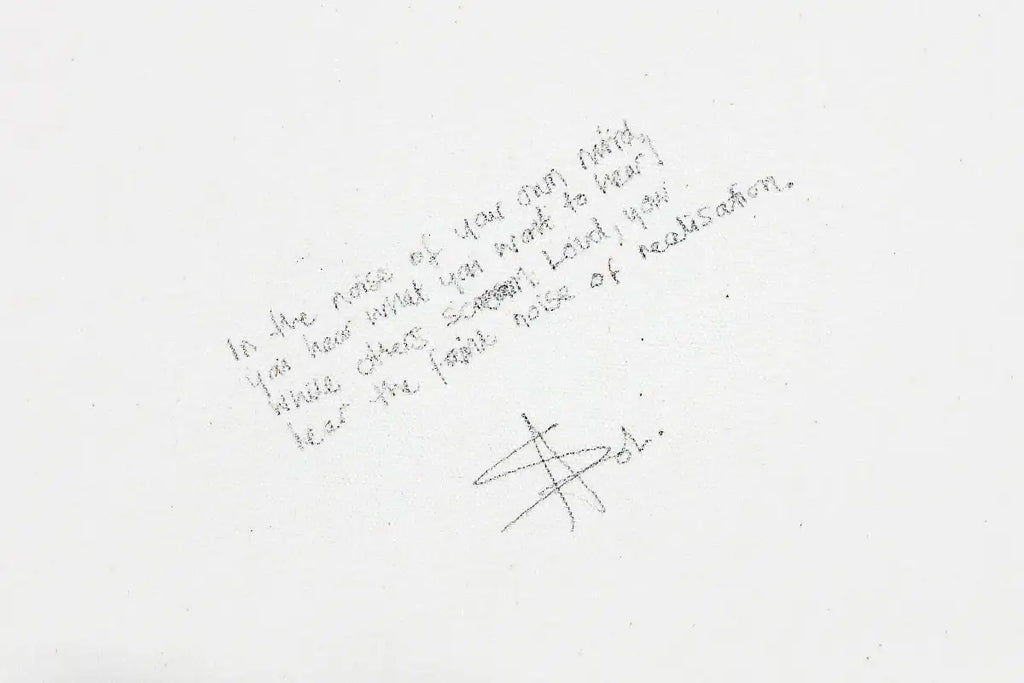 In the noise of your own mind,
you hear what you want to hear,
while others scream Loud, you
hear the faint noise of realisation.